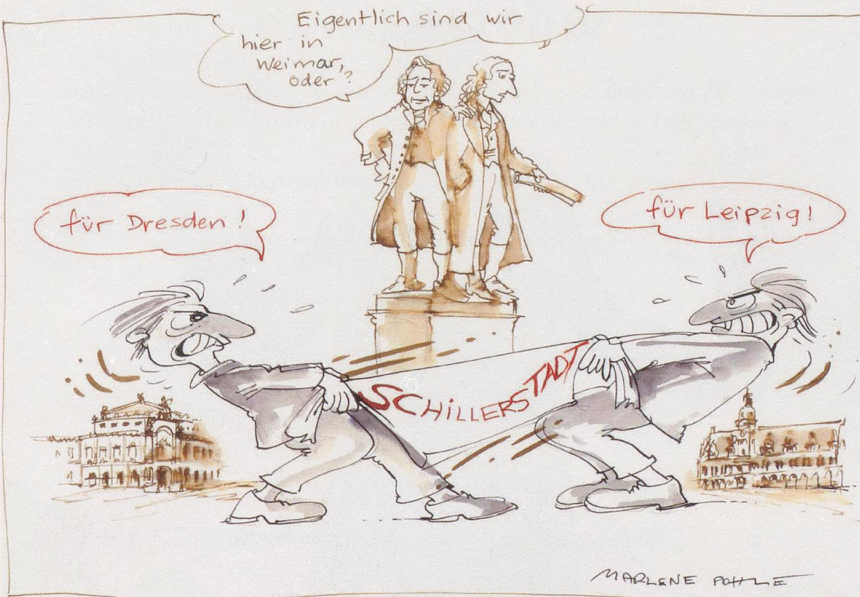 Eigentlich sind wir
hier in
Weimar,
oder?
für Dresden!
für Leipzig!
SCHILLERSTADT
MARLENE POHLE